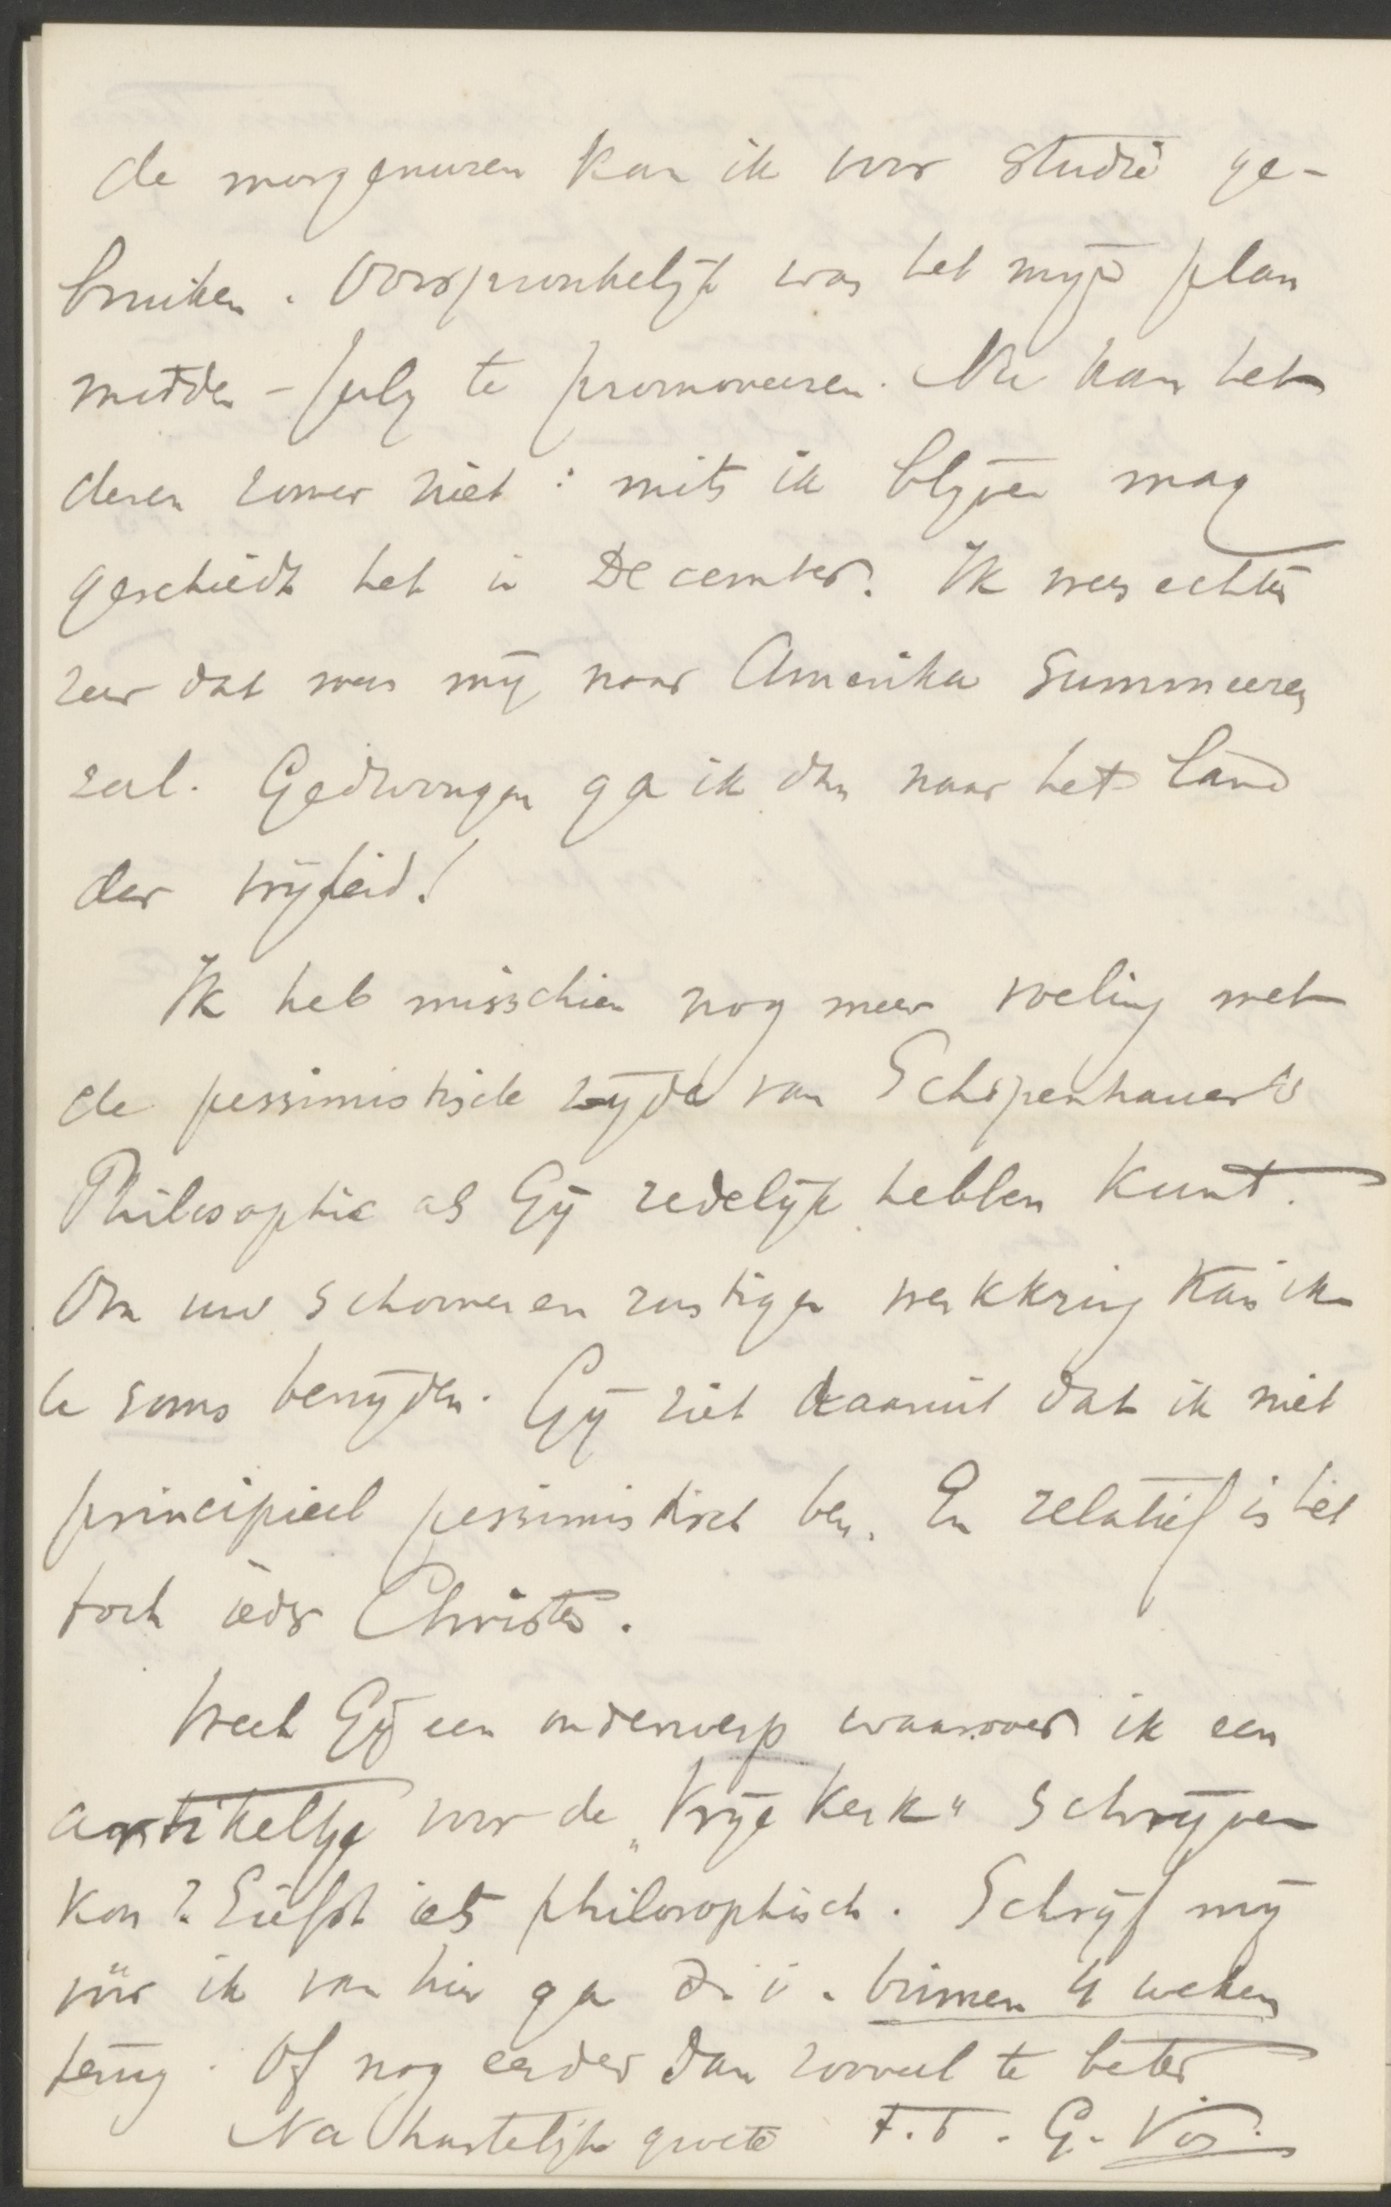 de morgenuren kan ik voor studie ge-
bruiken. Oorspronkelijk was het mijn plan
midden-July te promoveeren. Nu kan het
dezen zomer niet: mits ik blijven mag
geschiedt het in December. Ik vrees echter
zeer dat men mij naar Amerika summeeren
zal. Gedwongen ga ik dan naar het land
der vrijheid!
Ik heb misschien nog meer voeling met
de pessimistische zijde van Schopenhauer's
Philosophie als Gij redelijk hebben kunt.
Om uw schoonen en rustigen werkkring kan ik
U soms benijden. Gij ziet daaruit dat ik niet
principieel pessimistisch ben. En relatief is het
toch ieder Christen.
Weet Gij een onderwerp waarover ik een
artikeltje voor de „Vrije Kerk" schrijven
kon? Liefst iets philosophisch. Schrijf mij
vóór ik van hier ga d. i. binnen 4 weken
terug. Of nog eerder dan zooveel te beter
Na hartelijke groete t.t. G. Vos.